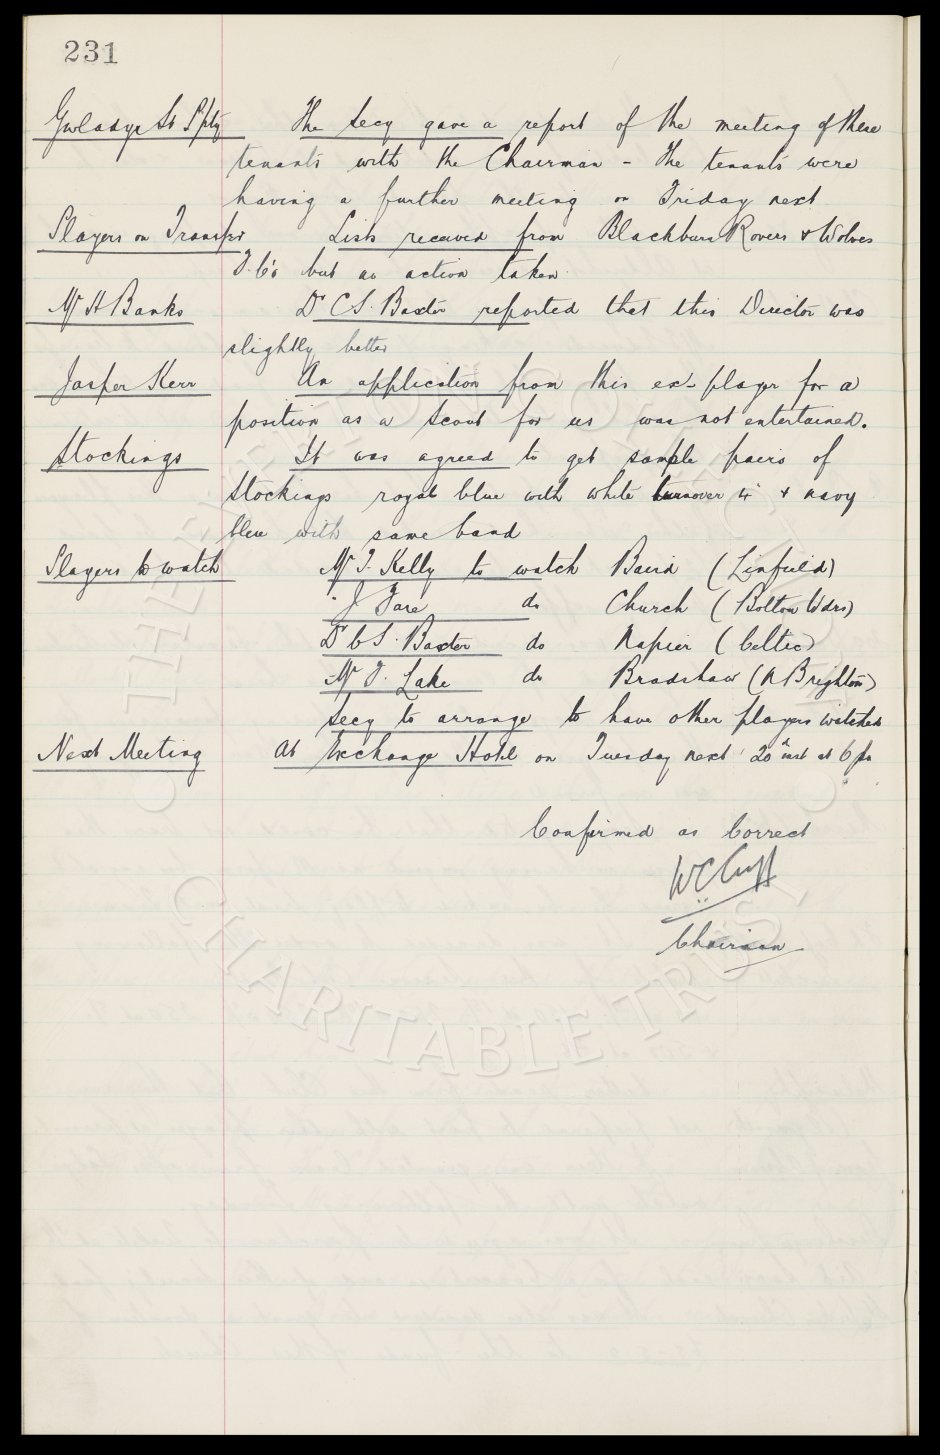 231
Gwladys St Ppty The Secy gave a report of the meeting of these
tenants with the Chairman - The tenants were
having a further meeting on Friday next
Players on Transfer Lists received from Blackburn Rovers & Wolves
F.C's but no action taken.
Mr H Banks Dr C S. Baxter reported that this Director was
slightly better
Jasper Kerr An application from this ex-player for a
position as a scout for us was not entertained.
Stockings It was agreed to get sample pairs of
stockings royal blue with white turnover 4" & navy
blue with same band
Players to watch Mr T. Kelly to watch Baird (Linfield)
" J Fare do Church (Bolton Wdrs)
Dr C S. Baxter do Napier (Celtic)
Mr F. Lake do Bradshaw (N Brighton)
Secy to arrange to have other players watched
Next Meeting At Exchange Hotel on Tuesday next 20th inst at 6 pm
Confirmed as Correct
WCCuff
Chairman
THE EVERTON COLLECTION
CHARITABLE TRUST